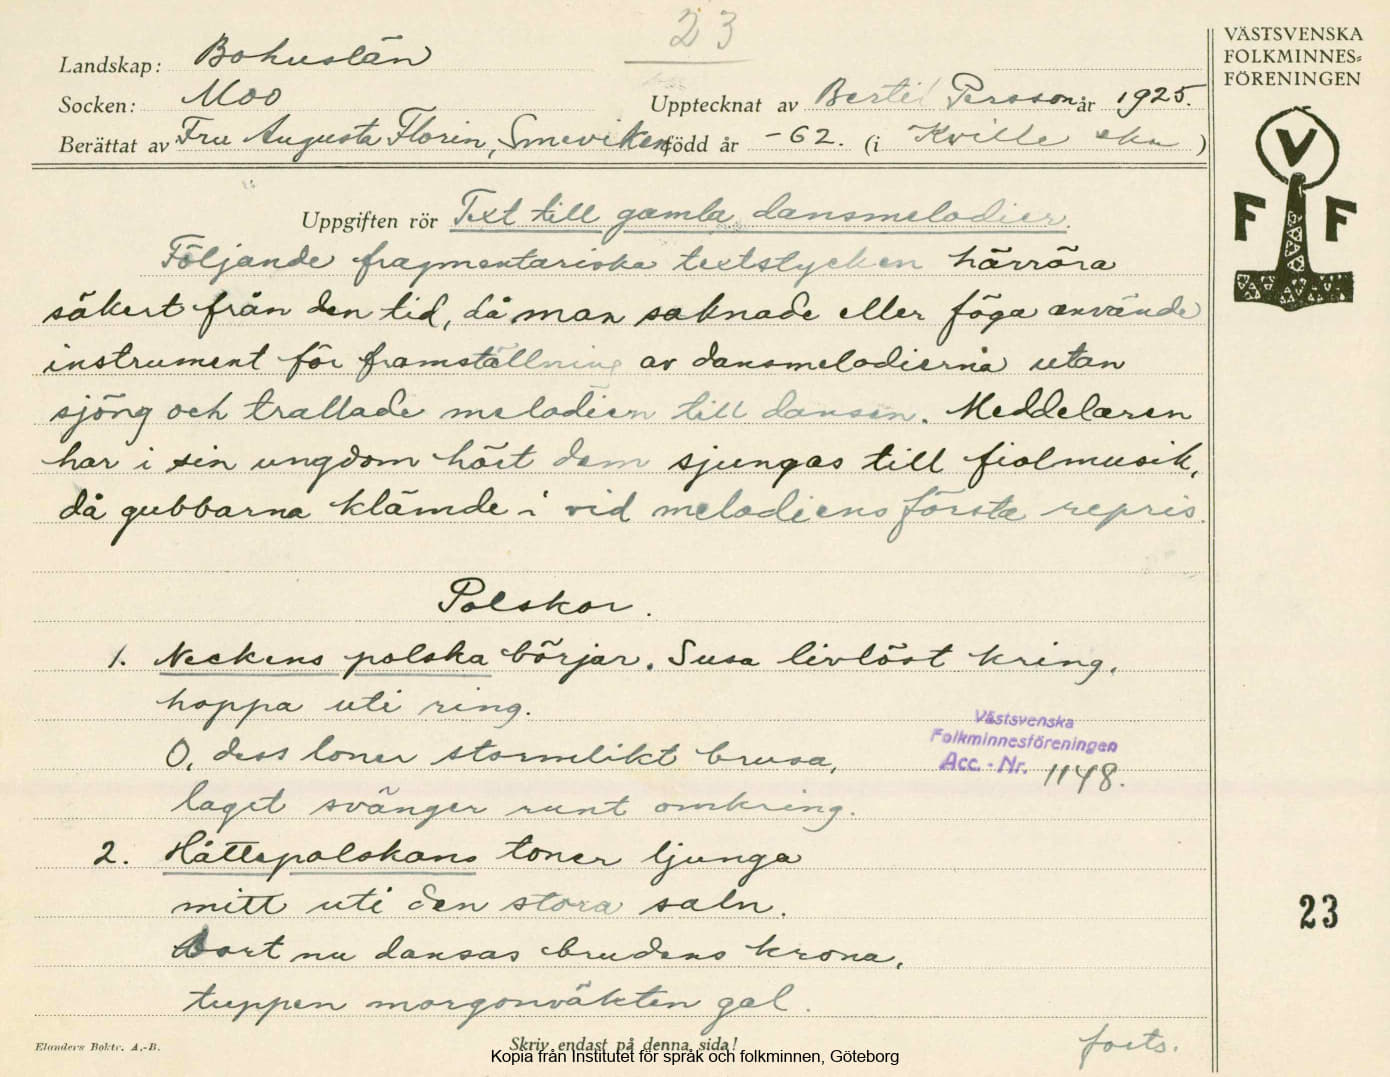 23
VÄSTSVENSKA
FOLKMINNES-
FÖRENINGEN
Landskap: Bohuslän
Socken: Moo
Upptecknat av Bertil Persson år 1925.
Berättat av Fru Augusta Florin, Smeviken
född år -62. (i Kville skn )
V
F F
Uppgiften rör Text till gamla dansmelodier.
Följande fragmentariska textstycken härröra
säkert från den tid, då man saknade eller föga använde
instrument för framställning av dansmelodierna utan
sjöng och trallade melodien till dansen. Meddelaren
har i sin ungdom hört dem sjungas till fiolmusik,
då gubbarna klämde i vid melodiens första repris.
Polskor.
1. Neckens polska börjar. Susa livlöst kring,
hoppa uti ring.
O, dess toner stormlikt brusa,
laget svänger runt omkring.
Västsvenska
Folkminnesföreningen
Acc. - Nr. 1148.
2. Håttepolskans toner ljunga
mitt uti den stora saln.
Bort nu dansas brudens krona,
tuppen morgonväkten gal.
23
forts.
Elanders Boktr. A.-B.
Skriv endast på denna sida!
Kopia från Institutet för språk och folkminnen, Göteborg